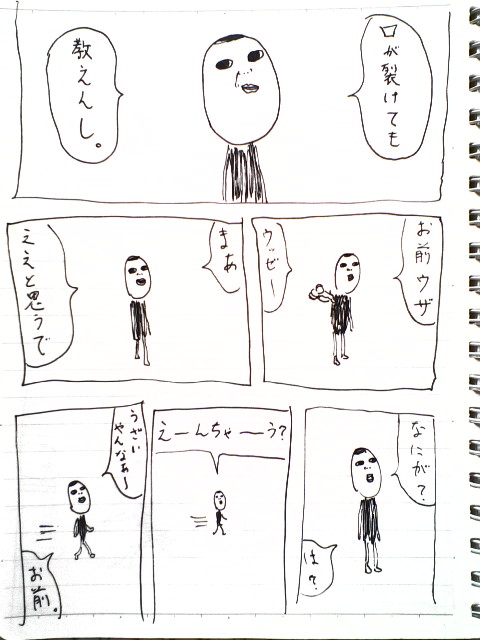 口が裂けても
教えんし。
お前ウザ
ウッゼー
まあ
ええと思うで
なにが？
は？
えーんちゃーう？
うざい
やんなぁ〜
お前。